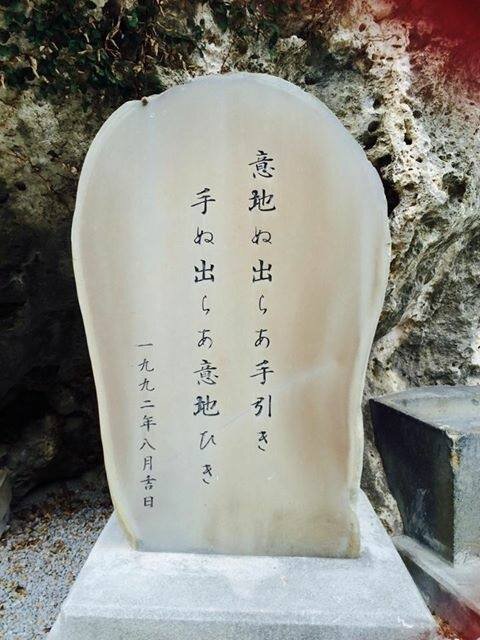 意地ぬ出らあ手引き
手ぬ出らあ意地ひき
一九九二年八月吉日